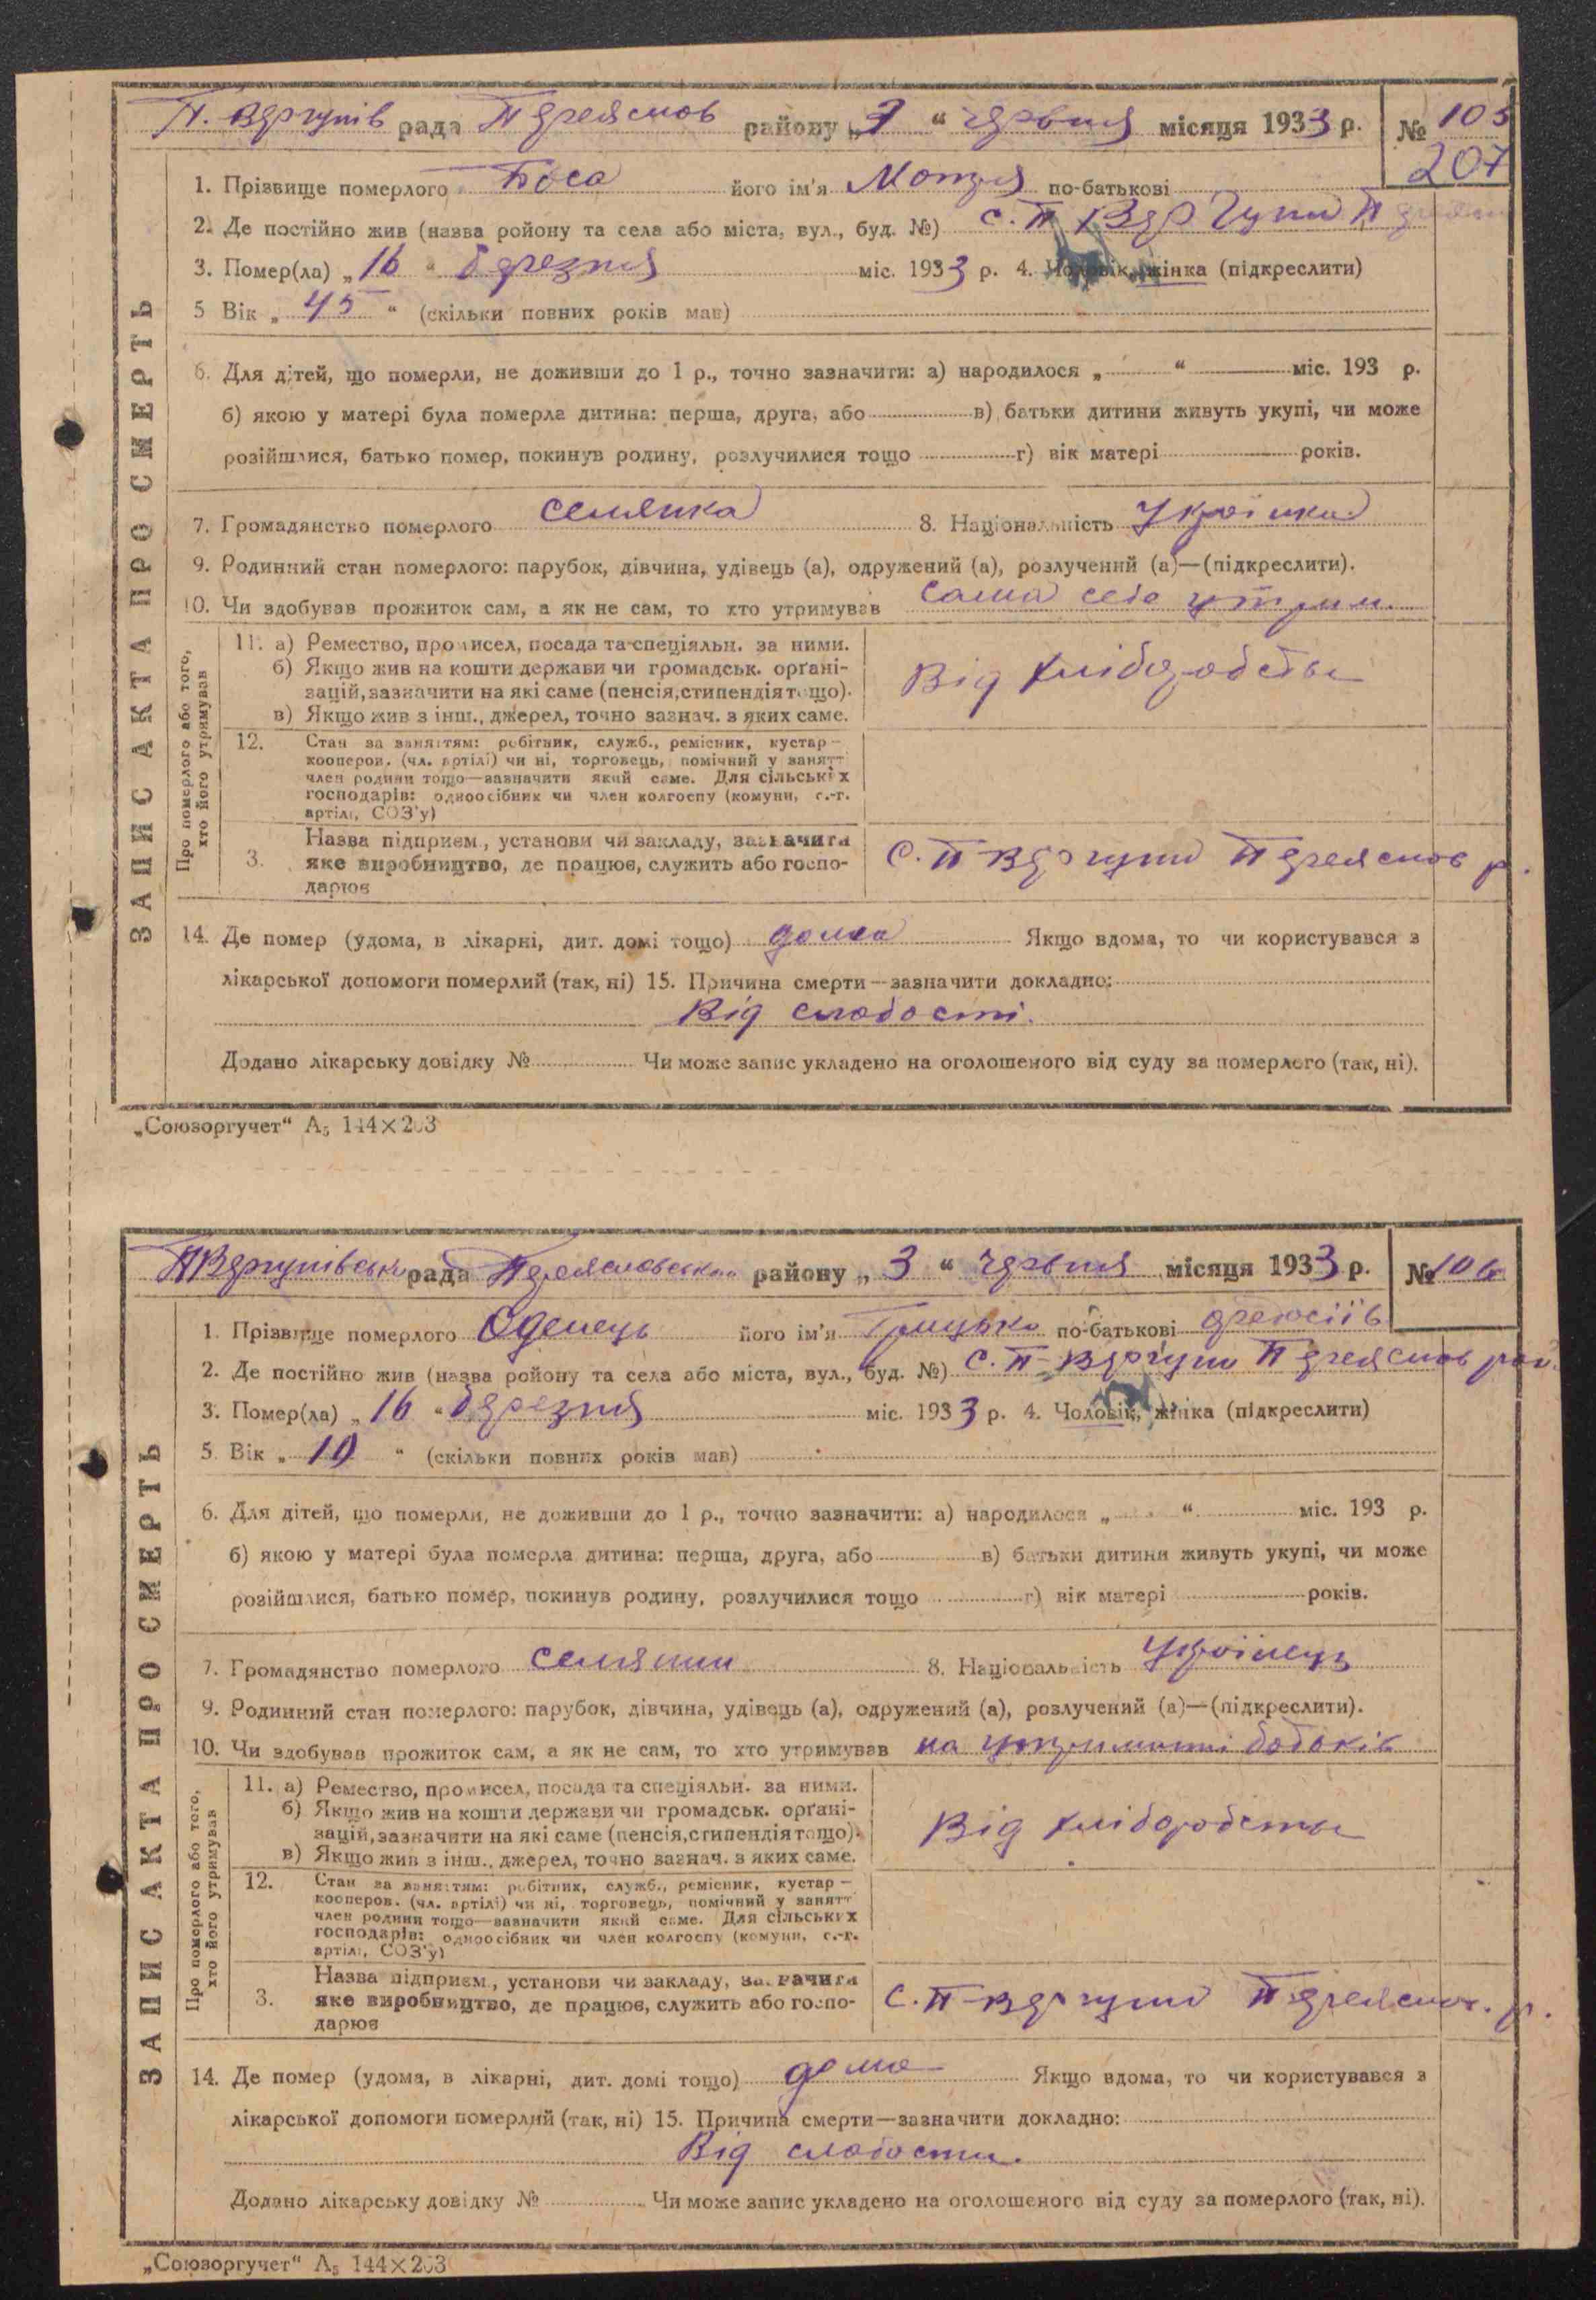 П. Вергунів рада Переяслов району „3“ червня місяця 1933 р. № 105
207
1. Прізвище померлого Боса його ім'я Мотря по-батькові
2. Де постійно жив (назва ройону та села або міста, вул., буд. №) с. П Вергуни П
3. Помер(ла) „16“ березня міс. 1933 р. 4. Чоловік, жінка (підкреслити)
5 Вік „45“ (скільки повних років мав)
6. Для дітей, що померли, не доживши до 1 р., точно зазначити: а) народилося „ “ міс. 193 р.
б) якою у матері була померла дитина: перша, друга, або в) батьки дитини живуть укупі, чи може
розійшлися, батько помер, покинув родину, розлучилися тощо г) вік матері років.
7. Громадянство померлого селянка 8. Національність Українка
9. Родинний стан померлого: парубок, дівчина, удівець (а), одружений (а), розлучений (а)—(підкреслити).
10. Чи здобував прожиток сам, а як не сам, то хто утримував сама себе утрим.
ЗАПИС АКТА ПРО СМЕРТЬ
Про померлого або того, хто його утримував
11. а) Ремество, промисел, посада та спеціяльн. за ними.
б) Якщо жив на кошти держави чи громадськ. орґані-
зацій, зазначити на які саме (пенсія, стипендія тощо).
в) Якщо жив з інш., джерел, точно зазнач. з яких саме.
Від хліборобства
12. Стан за заняттям: робітник, служб., ремісник, кустар—
кооперов. (чл. артілі) чи ні, торговець, помічний у занятт
член родини тощо—зазначити який саме. Для сільських
господарів: одноосібник чи член колгоспу (комуни, с.-г.
артілі, СОЗ'у)
3. Назва підприєм., установи чи закладу, зазначити
яке виробництво, де працює, служить або госпо-
дарює
С. П-Вергуни Переяслов р.
14. Де помер (удома, в лікарні, дит. домі тощо) дома Якщо вдома, то чи користувався з
лікарської допомоги померлий (так, ні) 15. Причина смерти—зазначити докладно:
Від слабості.
Додано лікарську довідку № Чи може запис укладено на оголошеного від суду за померлого (так, ні).
„Союзоргучет“ А5 144×203
ПВергунівська рада Переясловськ району „3“ червня місяця 1933 р. № 106
1. Прізвище померлого Оденець його ім'я Грицько по-батькові
2. Де постійно жив (назва ройону та села або міста, вул., буд. №) С. П-Вергуни Переяслов рай.
3. Помер(ла) „16“ березня міс. 1933 р. 4. Чоловік, жінка (підкреслити)
5. Вік „10“ (скільки повних років мав)
6. Для дітей, що померли, не доживши до 1 р., точно зазначити: а) народилося „ “ міс. 193 р.
б) якою у матері була померла дитина: перша, друга, або в) батьки дитини живуть укупі, чи може
розійшлися, батько помер, покинув родину, розлучилися тощо г) вік матері років.
7. Громадянство померлого селянин 8. Національність Українець
9. Родинний стан померлого: парубок, дівчина, удівець (а), одружений (а), розлучений (а)—(підкреслити).
10. Чи здобував прожиток сам, а як не сам, то хто утримував на утриманні батьків
ЗАПИС АКТА ПРО СМЕРТЬ
Про померлого або того, хто його утримував
11. а) Ремество, промисел, посада та спеціяльн. за ними.
б) Якщо жив на кошти держави чи громадськ. орґані-
зацій, зазначити на які саме (пенсія, стипендія тощо).
в) Якщо жив з інш., джерел, точно зазнач. з яких саме.
Від хліборобства
12. Стан за заняттям: робітник, служб., ремісник, кустар—
кооперов. (чл. артілі) чи ні, торговець, помічний у занятт
член родини тощо—зазначити який саме. Для сільських
господарів: одноосібник чи член колгоспу (комуни, с.-г.
артілі, СОЗ'у)
3. Назва підприєм., установи чи закладу, зазначити
яке виробництво, де працює, служить або госпо-
дарює
С. П-Вергуни Переяслов. р.
14. Де помер (удома, в лікарні, дит. домі тощо) дома Якщо вдома, то чи користувався з
лікарської допомоги померлий (так, ні) 15. Причина смерти—зазначити докладно:
Від слабости.
Додано лікарську довідку № Чи може запис укладено на оголошеного від суду за померлого (так, ні).
„Союзоргучет“ А5 144×203